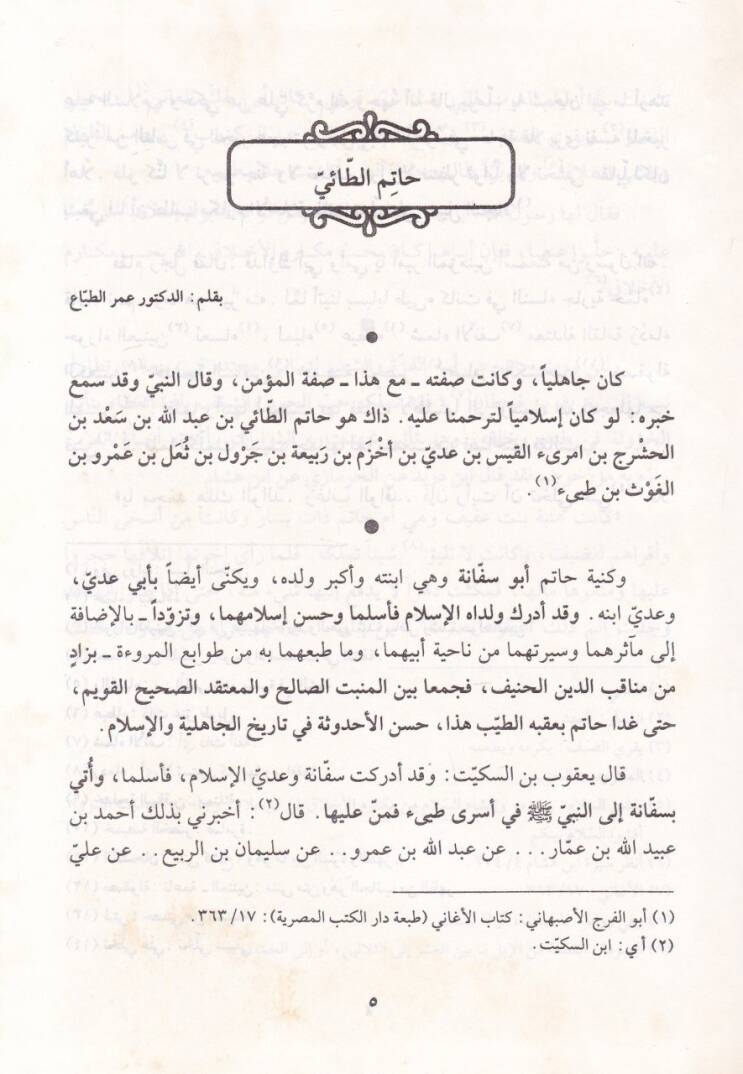 حاتِم الطّائيّ
بقلم: الدكتور عمر الطبّاع
كان جاهلياً، وكانت صفته ـ مع هذا ـ صفة المؤمن، وقال النبي وقد سمع
خبره: لو كان إسلامياً لترحمنا عليه. ذاك هو حاتم الطّائي بن عبد الله بن سَعْد بن
الحشْرج بن امرىء القيس بن عديّ بن أخْزَم بن رَبيعة بن جَرْوَل بن ثُعَل بن عَمْرو بن
الغَوْث بن طيىء(١).
وكنية حاتم أبو سفّانة وهي ابنته وأكبر ولده، ويكنّى أيضاً بأبي عديّ،
وعديّ ابنه. وقد أدرك ولداه الإسلام فأسلما وحسن إسلامهما، وتزوّداً ـ بالإضافة
إلى مآثرهما وسيرتهما من ناحية أبيهما، وما طبعهما به من طوابع المروءة ـ بزادٍ
من مناقب الدين الحنيف، فجمعا بين المنبت الصالح والمعتقد الصحيح القويم،
حتى غدا حاتم بعقبه الطيّب هذا، حسن الأحدوثة في تاريخ الجاهلية والإسلام.
قال يعقوب بن السكيّت: وقد أدركت سفّانة وعديّ الإسلام، فأسلما، وأُتي
بسفّانة إلى النبي ﷺ في أسرى طيىء فمنّ عليها. قال(٢): أخبرني بذلك أحمد بن
عبيد الله بن عمّار... عن عبد الله بن عمرو... عن سليمان بن الربيع.. عن عليّ
(١) أبو الفرج الأصبهاني: كتاب الأغاني (طبعة دار الكتب المصرية): ٣٦٣/١٧.
(٢) أي: ابن السكيّت.
٥